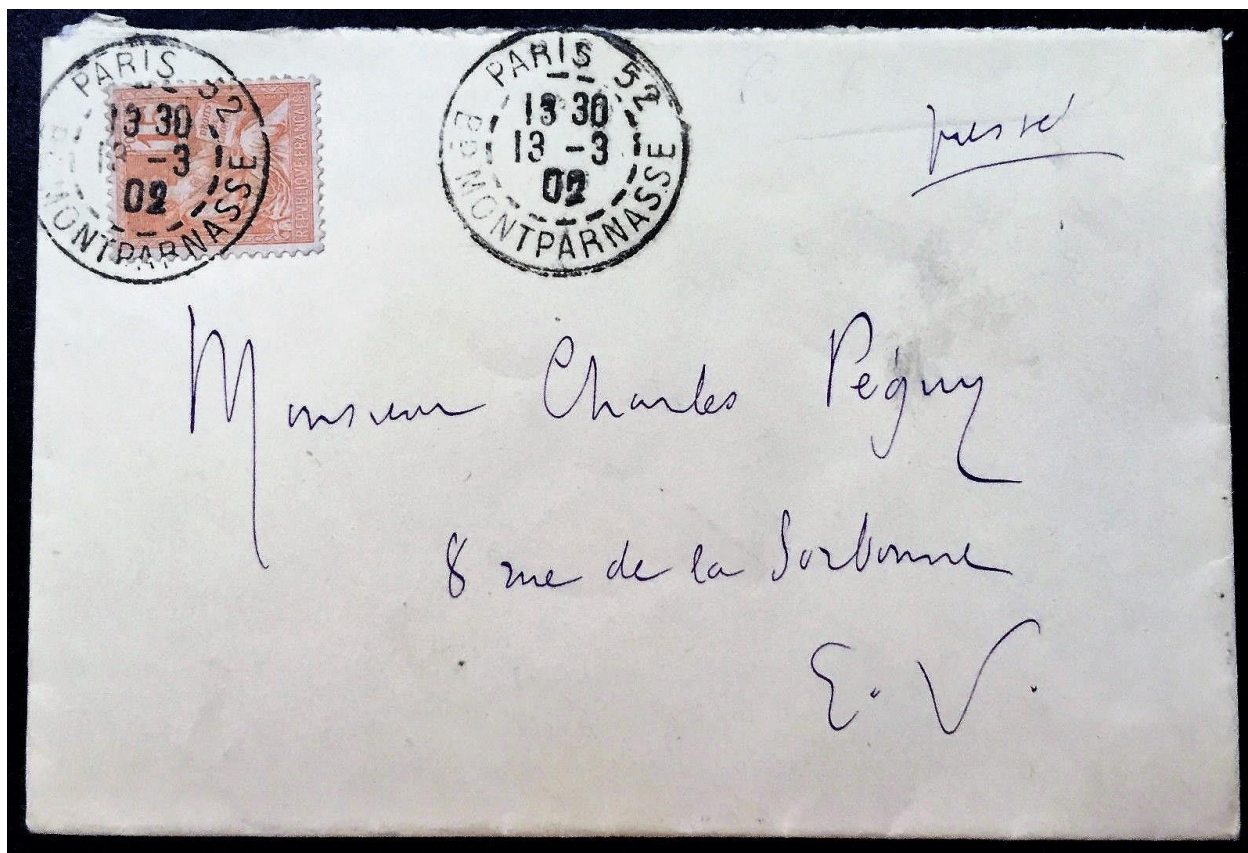 PARIS 52
13 30
13 -3
02
BD MONTPARNASSE
15
REPVBLIQVE FRANÇAISE
PARIS 52
13 30
13 -3
02
BD MONTPARNASSE
pressé
Monsieur Charles Péguy
8 rue de la Sorbonne
E. V.